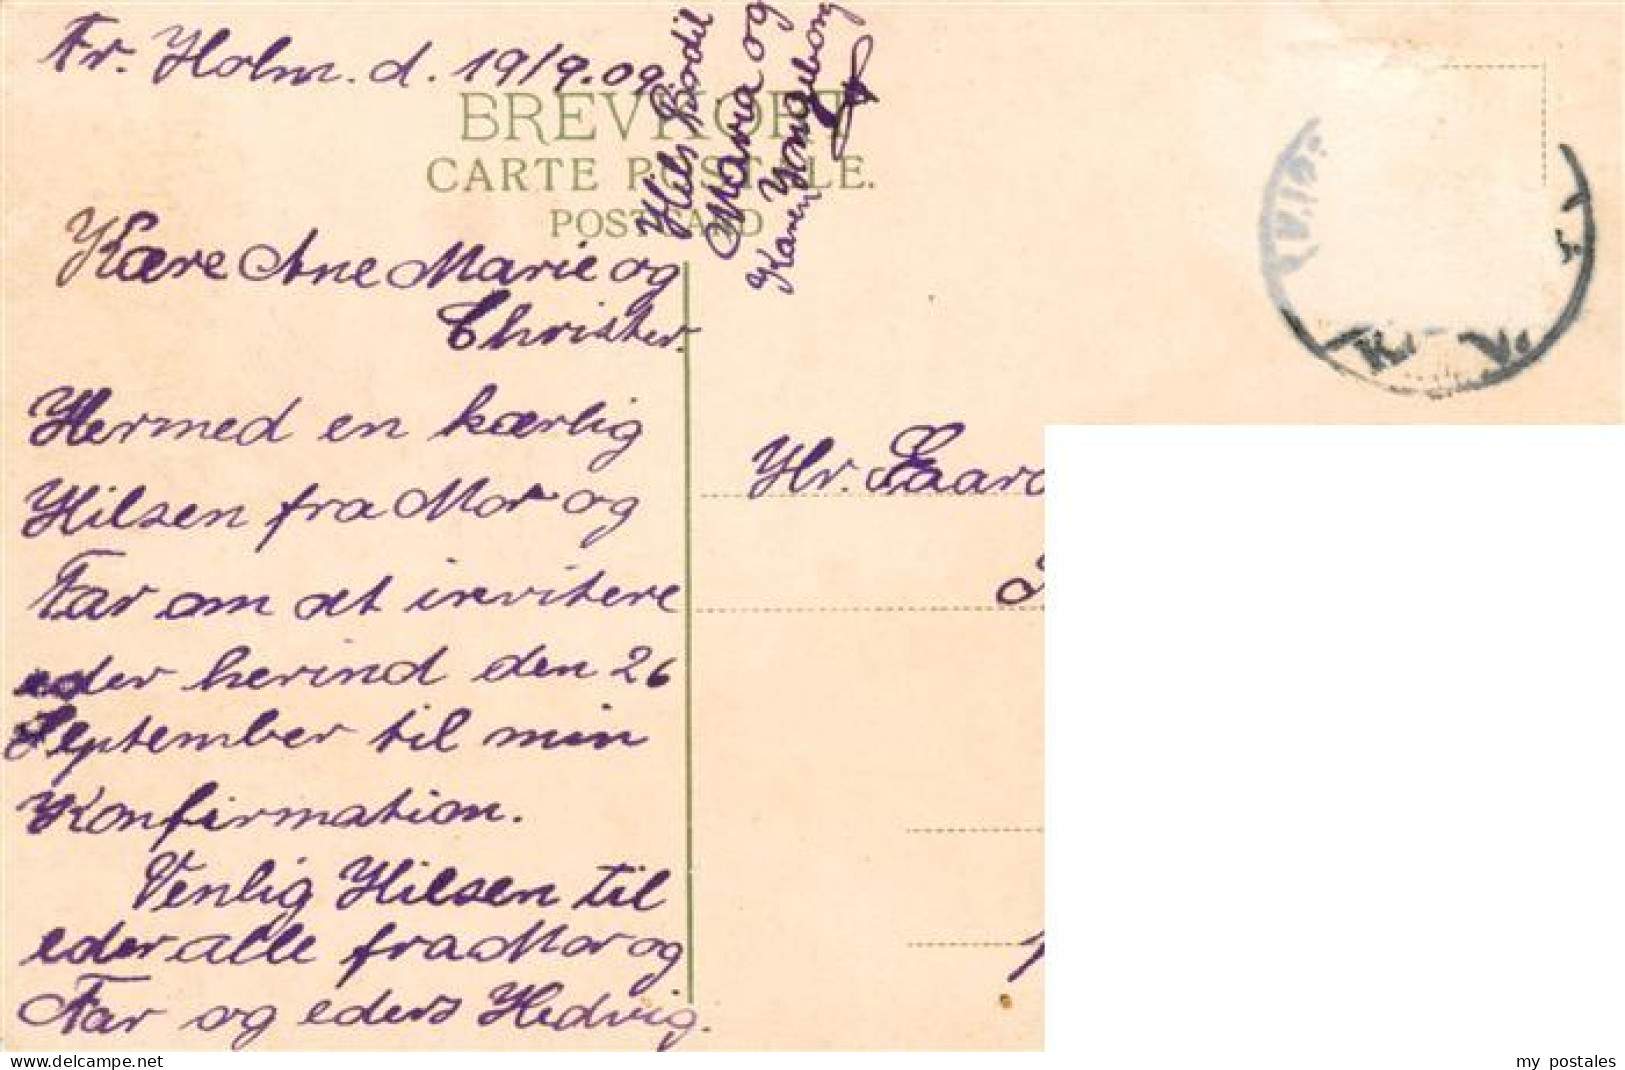 Fr. Holm. d. 19/9.09
BREVKORT
CARTE POSTALE.
POSTCARD
Hils Bodil
Maria og
Karen Yongeborg
Kære Ane Marie og
Christter.
Hermed en kærlig
Hilsen fra Mor og
Far om at invitere
eder herind den 26
September til min
Konfirmation.
Venlig Hilsen til
eder alle fra Mor og
Far og eders Hedvig.
Hr.
delcampe.net
my_postales